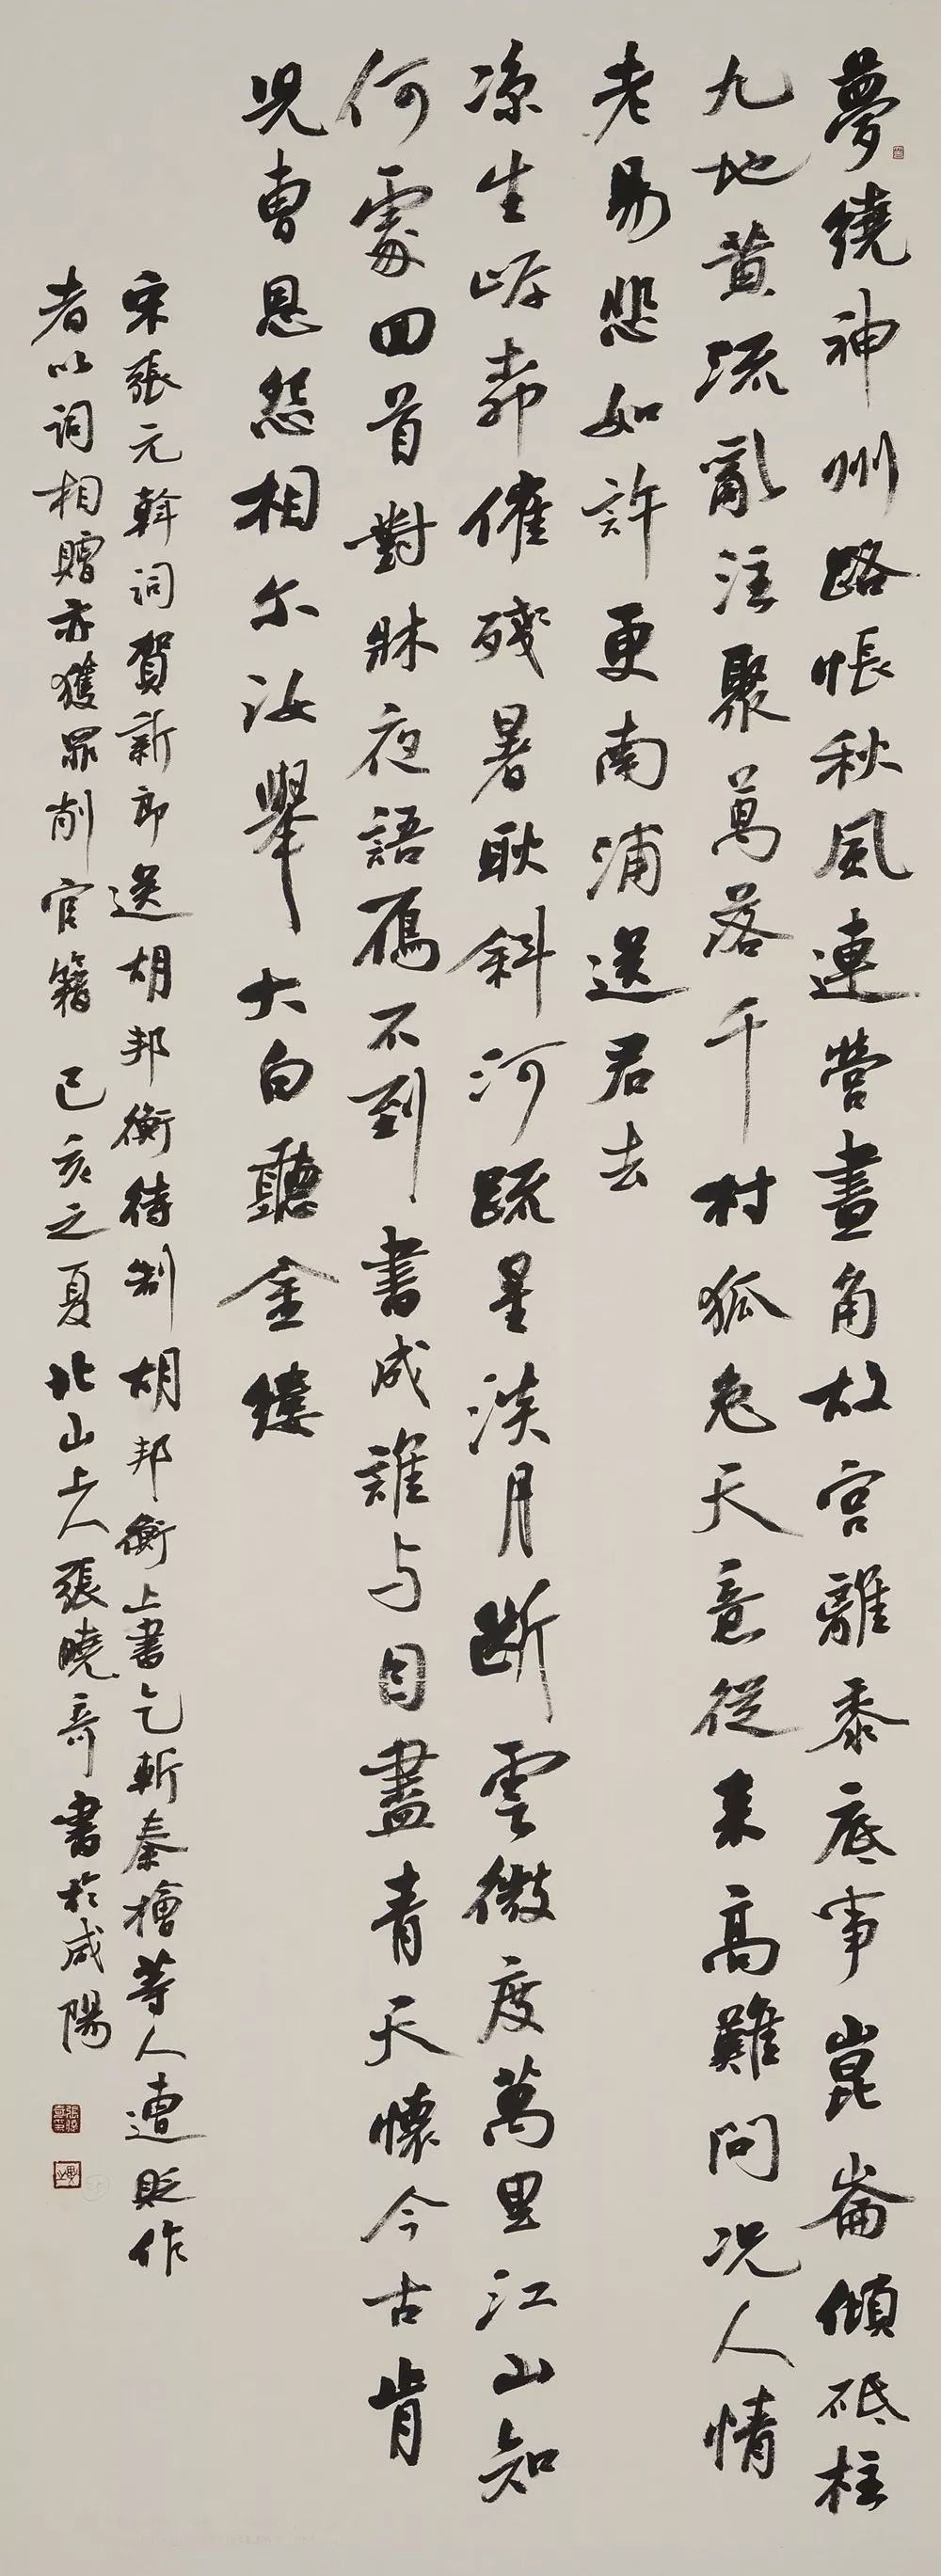 夢繞神州路悵秋風連營畫角故宮離黍底事崑崙傾砥柱
九地黃流亂注聚萬落千村狐兔天意從来高難問况人情
老易悲如許更南浦送君去
凉生岸帮催殘暑耿斜河疏星淡月斷雲微度萬里江山知
何處回首對牀夜語雁不到書成誰与目盡青天懷今古肯
児曹恩怨相尔汝舉大白聽金縷
宋張元幹詞賀新郎送胡邦衡待制胡邦衡上書乞斬秦檜等人遭貶作
者以詞相贈亦獲罪削官籍己亥之夏北山上人張曉奇書於咸陽